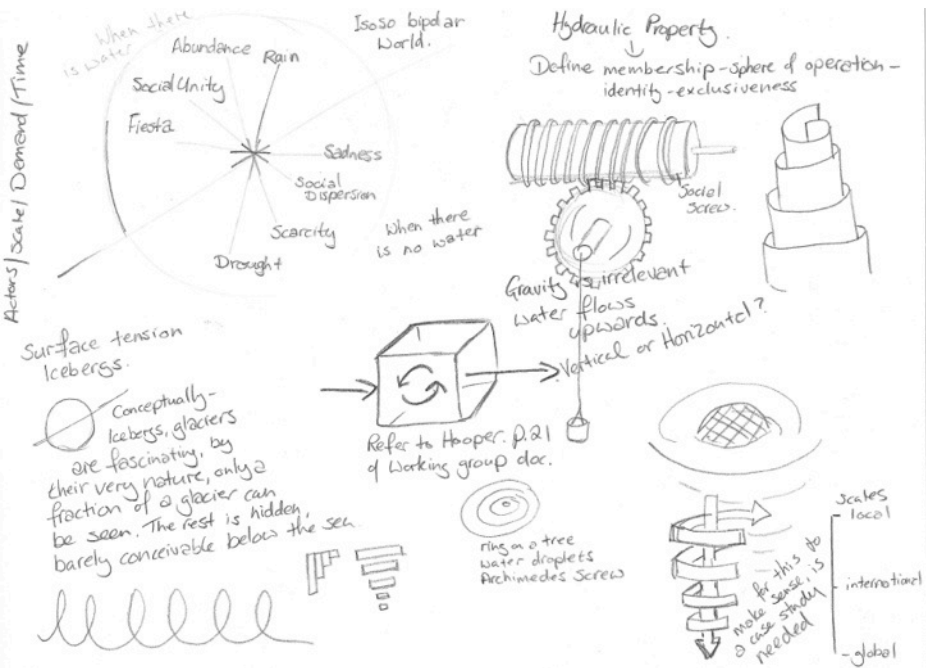 Actors/Scale/Demand/Time
When there
is water
Abundance
Rain
Social Unity
Fiesta
Sadness
Social
Dispersion
Scarcity
Drought
Isoso bipolar
World.
When there
is no water
Hydraulic Property.
Define membership-sphere of operation-
identity-exclusiveness
Social
Screw.
Gravity is irrelevant
water flows
upwards
Vertical or Horizontal?
Surface tension
Icebergs.
Conceptually-
Icebergs, glaciers
are fascinating, by
their very nature, only a
fraction of a glacier can
be seen. The rest is hidden,
barely conceivable below the sea.
Refer to Hooper. p.21
of Working group doc.
ring on a tree
water droplets
Archimedes Screw
for this to
make sense, is
a case study
needed
Scales
- local
- international
- global